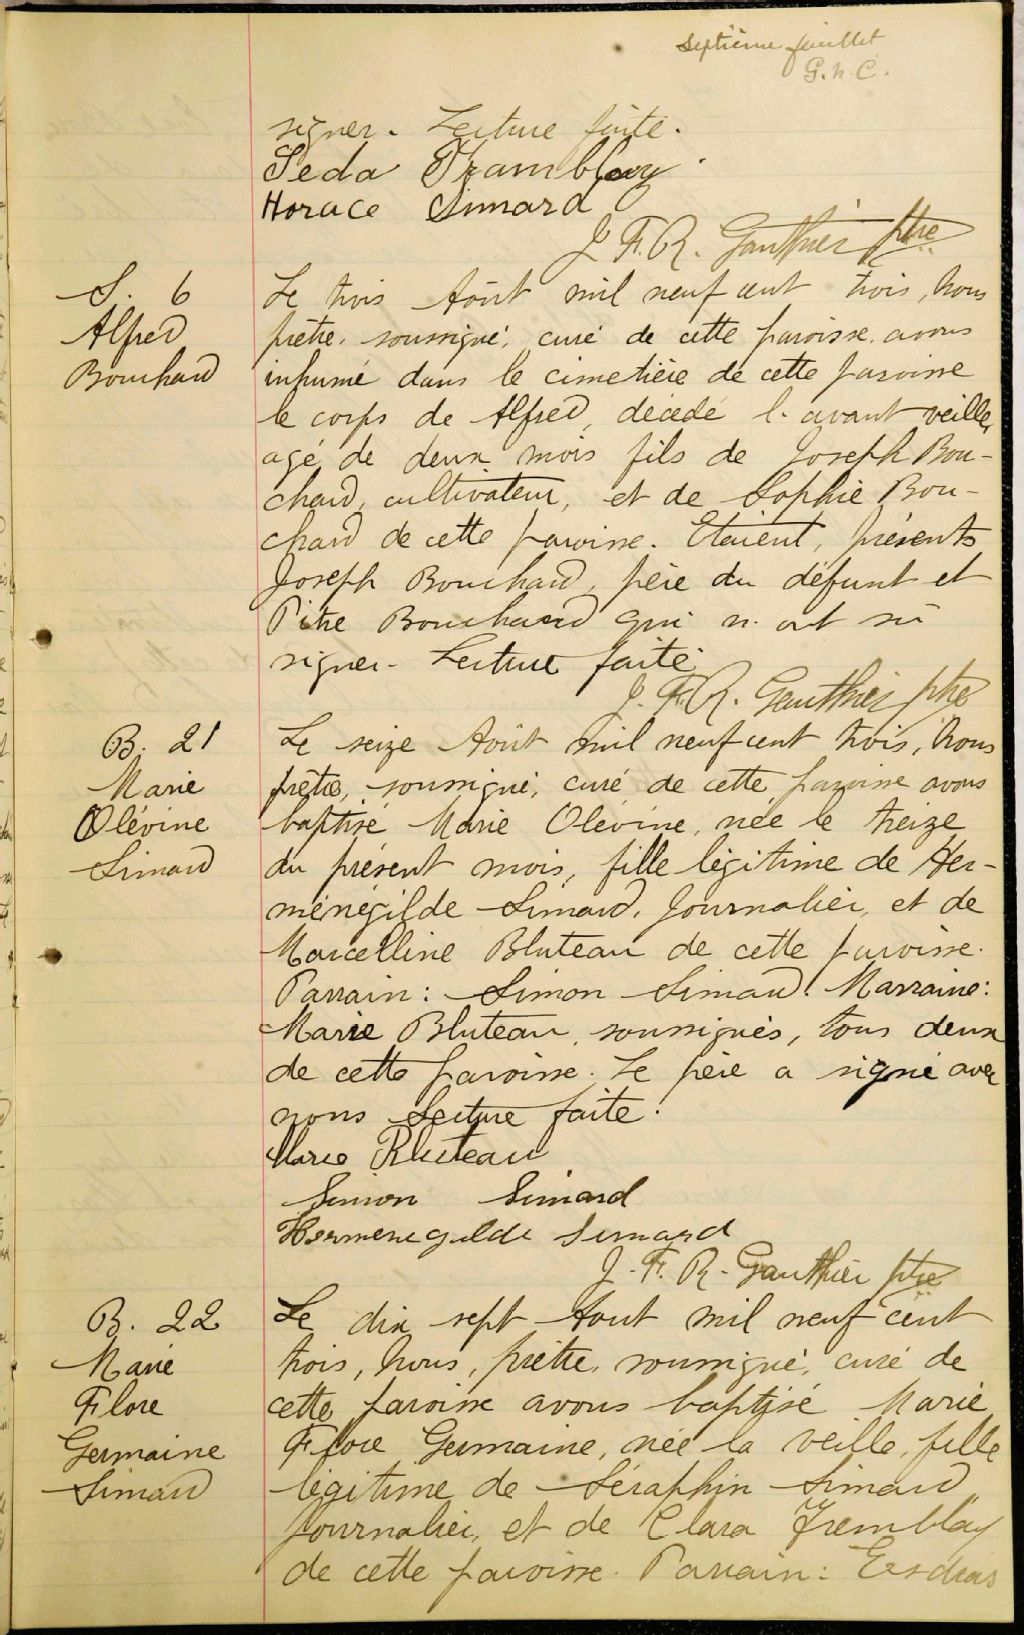 Septième feuillet
G.N.C.
signer. Lecture faite.
Leda Tramblay
Horace Simard
J. F. R. Gauthier ptre
S. 6
Alfred
Bouchard
Le trois Août mil neuf cent trois, nous
prêtre, soussigné, curé de cette paroisse avons
inhumé dans le cimetière de cette paroisse
le corps de Alfred, décédé l'avant veille,
agé de deux mois fils de Joseph Bou-
chard, cultivateur, et de Sophie Bou-
chard de cette paroisse. Etaient, présents
Joseph Bouchard, père du défunt et
Pitre Bouchard qui n'ont su
signer. Lecture faite
J. F. R. Gauthier ptre
B. 21
Marie
Olévine
Simard
Le seize Août mil neuf cent trois, nous
prêtre, soussigné, curé de cette paroisse avons
baptisé Marie Olévine, née le treize
du présent mois, fille légitime de Her-
ménégilde Simard, journalier, et de
Marcelline Bluteau de cette paroisse.
Parrain: Simon Simard. Marraine:
Marie Bluteau, soussignés, tous deux
de cette paroisse. Le père a signé avec
nous Lecture faite.
Marie Bluteau
Simon Simard
Hermenegilde Simard
J. F. R. Gauthier ptre
B. 22
Marie
Flore
Germaine
Simard
Le dix sept Aout mil neuf cent
trois, nous, prêtre, soussigné, curé de
cette paroisse avons baptisé Marie
Flore Germaine, née la veille, fille
légitime de Séraphin Simard
journalier, et de Clara Tremblay
de cette paroisse. Parrain: Esdras